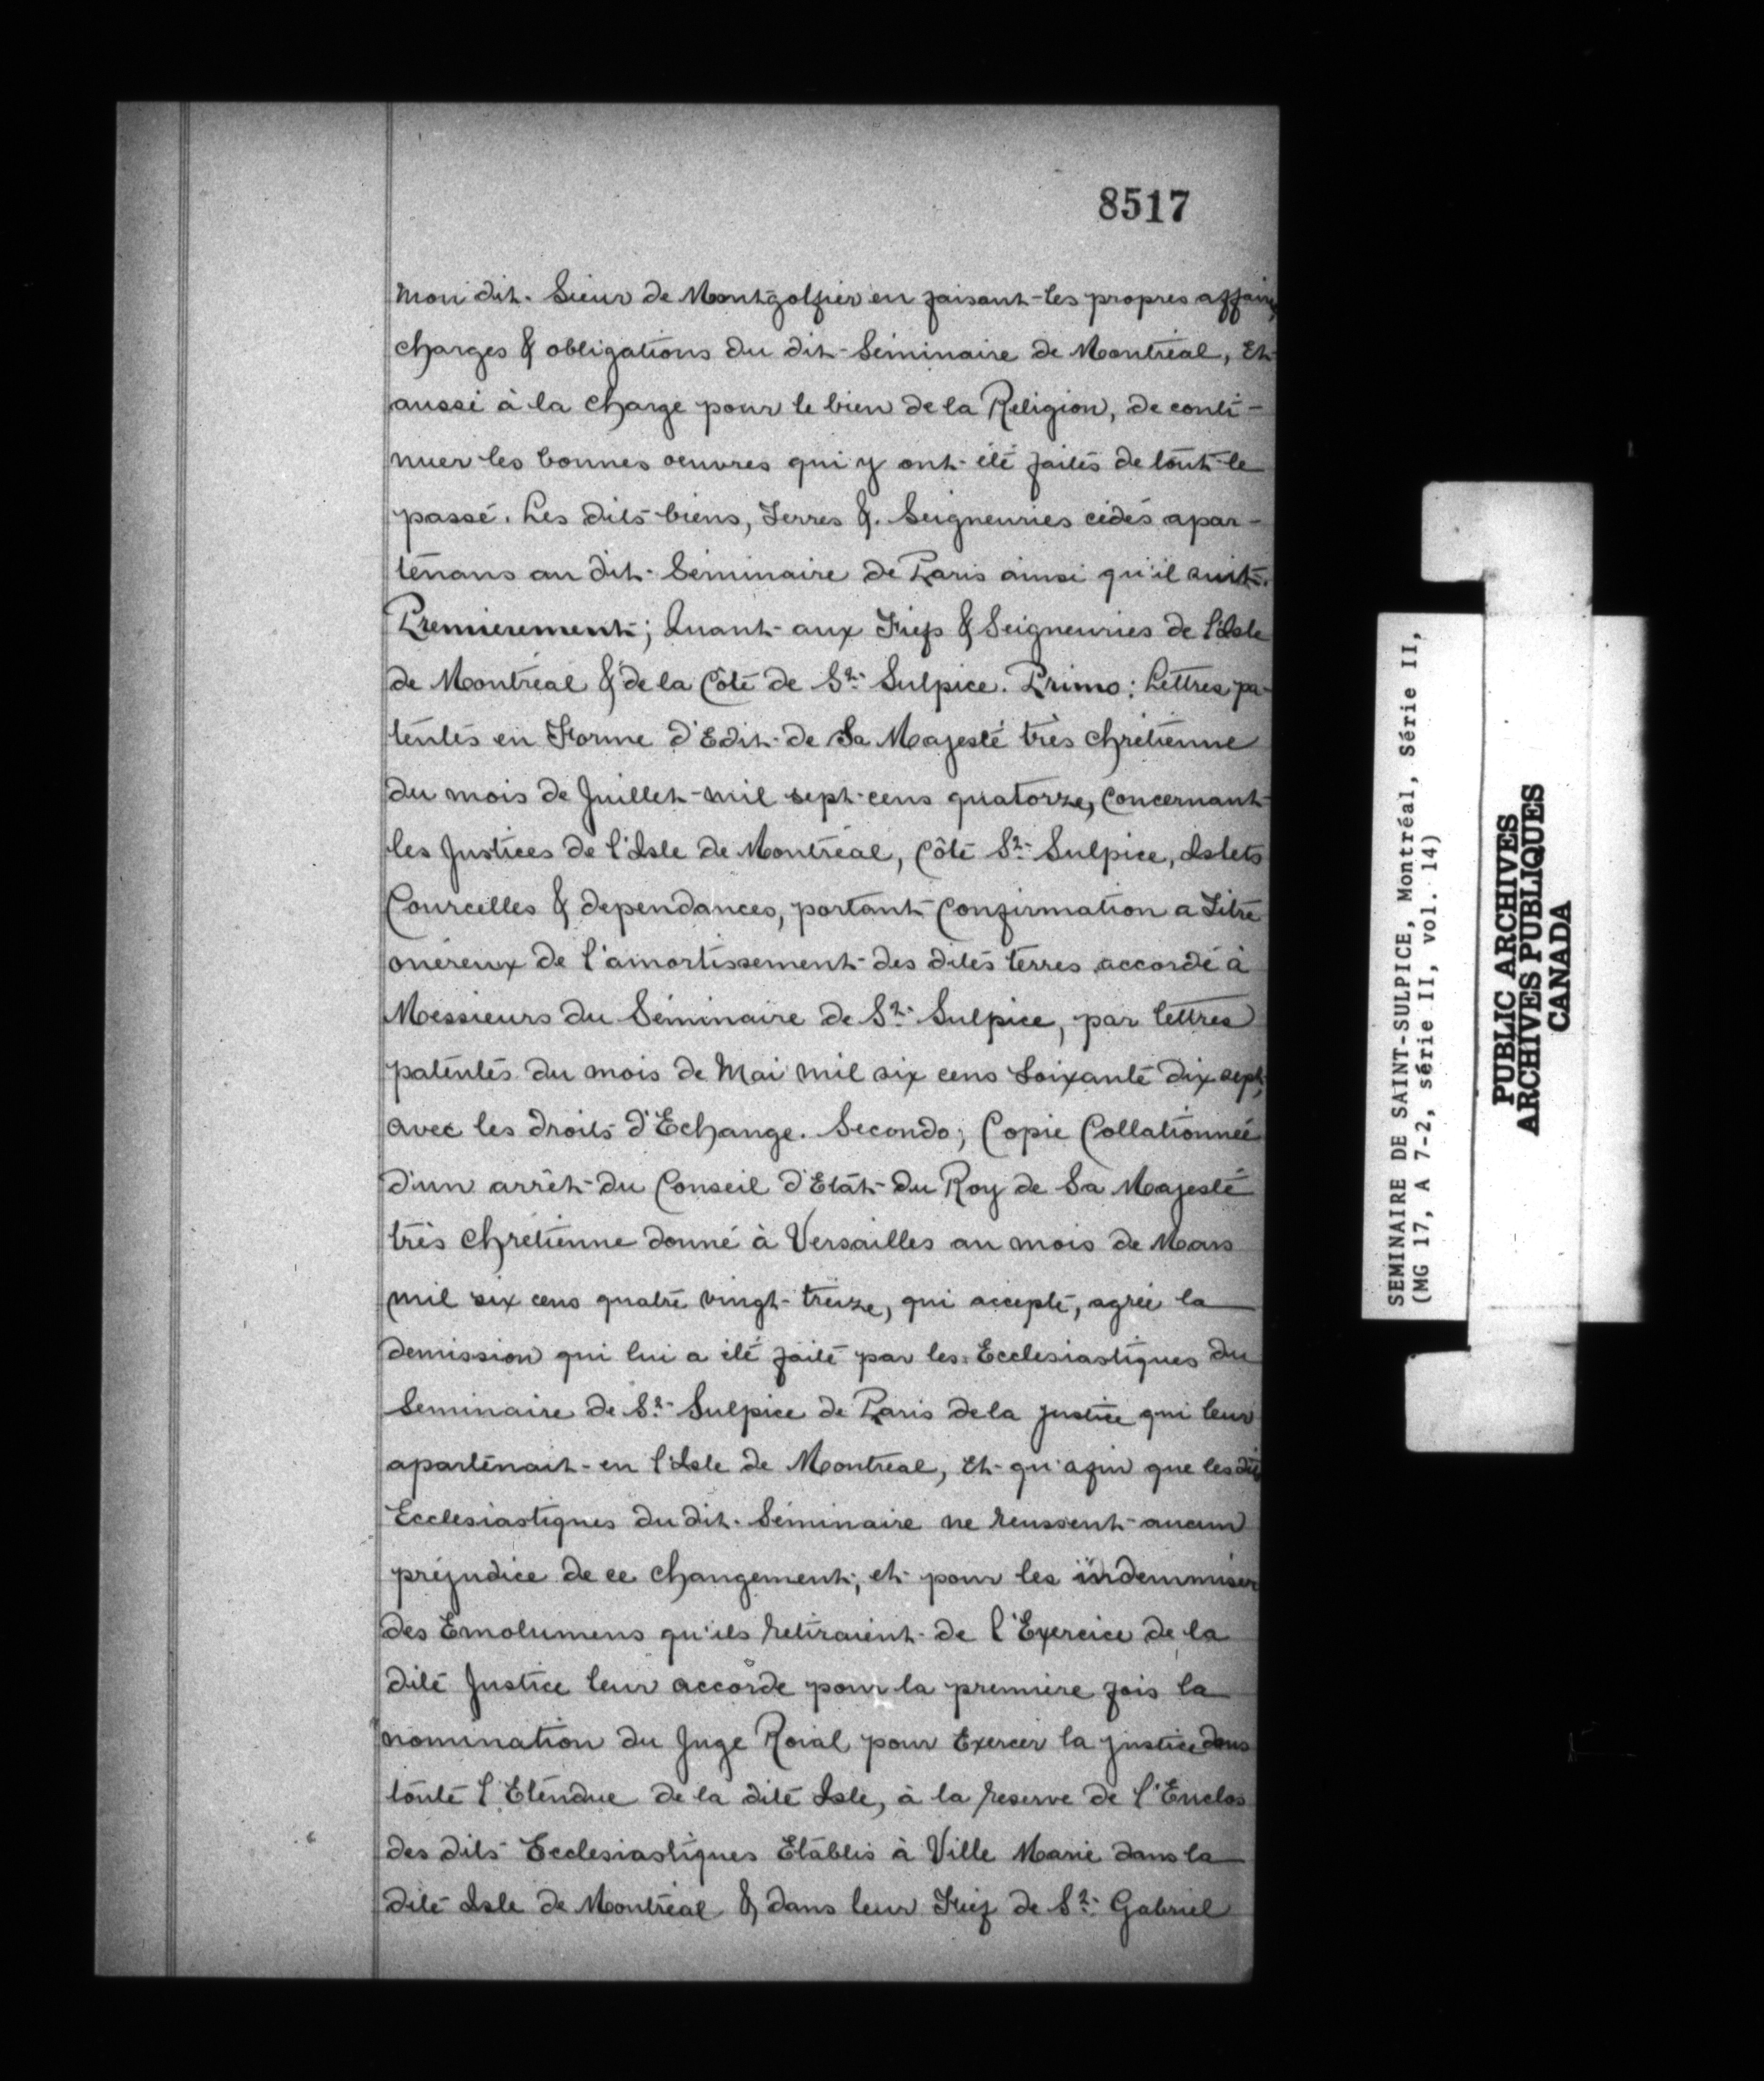 8517
mon dit Sieur de Montgolfier en faisant les propres affaires
charges & obligations du dit Séminaire de Montréal, Et
aussi à la charge pour le bien de la Religion, de conti-
nuer les bonnes oeuvres qui y ont été faites de tout le
passé. Les dits biens, Terres &. Seigneuries cédés apar-
tenans au dit Séminaire de Paris ainsi qu'il suit.
Premierement; Quant aux Fiefs & Seigneuries de l'Isle
de Montréal & de la Côte de St. Sulpice. Primo: Lettres pa-
tentes en Forme d'Edit de Sa Majesté très chrétienne
du mois de Juillet mil sept cens quatorze, Concernant
les Justices de l'Isle de Montréal, Côte St. Sulpice, Islets
Courcelles & dependances, portant Confirmation a Titre
onéreux de l'amortissement des dites terres accordé à
Messieurs du Séminaire de St. Sulpice, par lettres
patentes du mois de Mai mil six cens Soixante dix sept,
avec les droits d'Echange. Secondo; Copie Collationnée
d'un arrêt du Conseil d'Etat du Roy de Sa Majesté
très chrétienne donné à Versailles au mois de Mars
mil six cens quatre vingt treize, qui accepte, agrée la
demission qui lui a été faite par les Ecclesiastiques du
Seminaire de St. Sulpice de Paris de la justice qui leur
apartenait en l'Isle de Montréal, Et qu'afin que les dits
Ecclesiastiques du dit Séminaire ne reussent aucun
préjudice de ce changement, et pour les indemniser
des Emolumens qu'ils retiraient de l'Exercice de la
dite Justice leur accorde pour la première fois la
nomination du Juge Roial pour Exercer la justice dans
toute l'Etendue de la dite Isle, à la reserve de l'Enclos
des dits Ecclesiastiques Etablis à Ville Marie dans la
dite Isle de Montréal & dans leur Fief de St. Gabriel
SEMINAIRE DE SAINT-SULPICE, Montréal, Série II,
(MG 17, A 7-2, série II, vol. 14)
PUBLIC ARCHIVES
ARCHIVES PUBLIQUES
CANADA